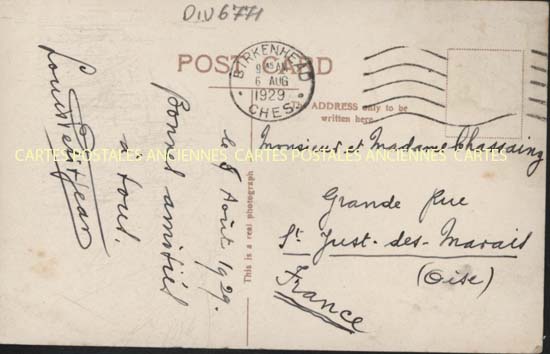 DIV6771
POST CARD
BIRKENHEAD
9 45 AM
6 AUG
1929
CHES.
The ADDRESS only to be
written here
CARTES POSTALES ANCIENNES CARTES POSTALES ANCIENNES CARTES
le 6 Août 1929.
Bonnes amitiés
à tous.
This is a real photograph
Monsieur et Madame Chassaing
Grande Rue
St Just-des-Marais
(Oise)
France